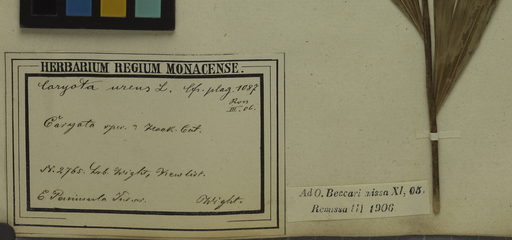 HERBARIUM REGIUM MONACENSE.
Caryota urens L. Cfr. plag. 1087
III. 06.
Caryota spec. ? Hook. Cat.
N. 2765. Herb. Wight,
E Peninsula Ind. or. Wight.
Ad O. Beccari missa XI, 05.
Remissa III 1906